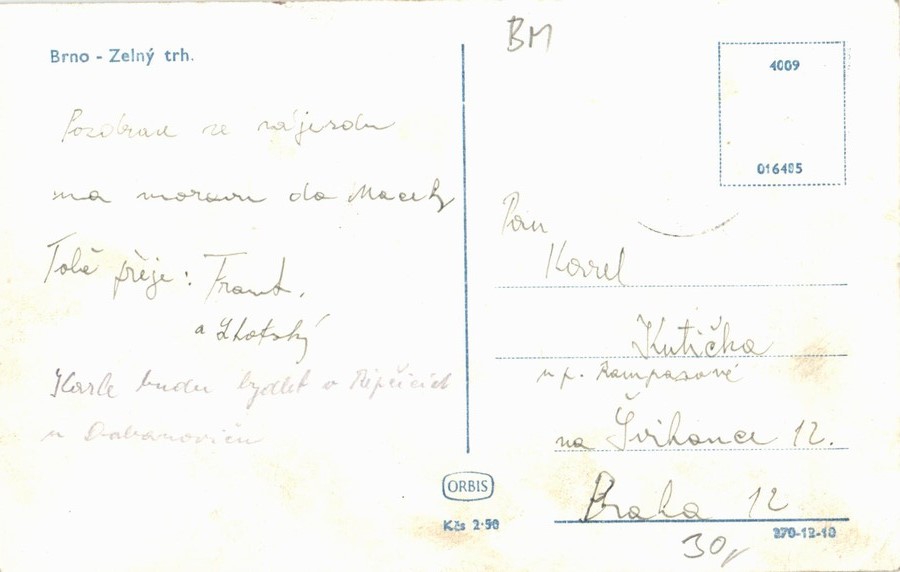 Brno - Zelný trh.
Pozdrav ze zájezdu
na moravu do Macechy
Tobě přeje: Frant.
a Lhotský
Karle budu bydlet v Řipčicích
u
BM
4009
016485
Pan
Karel
Kutička
u p. Rampasové
na Švihance 12.
Praha 12
ORBIS
Kčs 2·50
270-12-10
30,